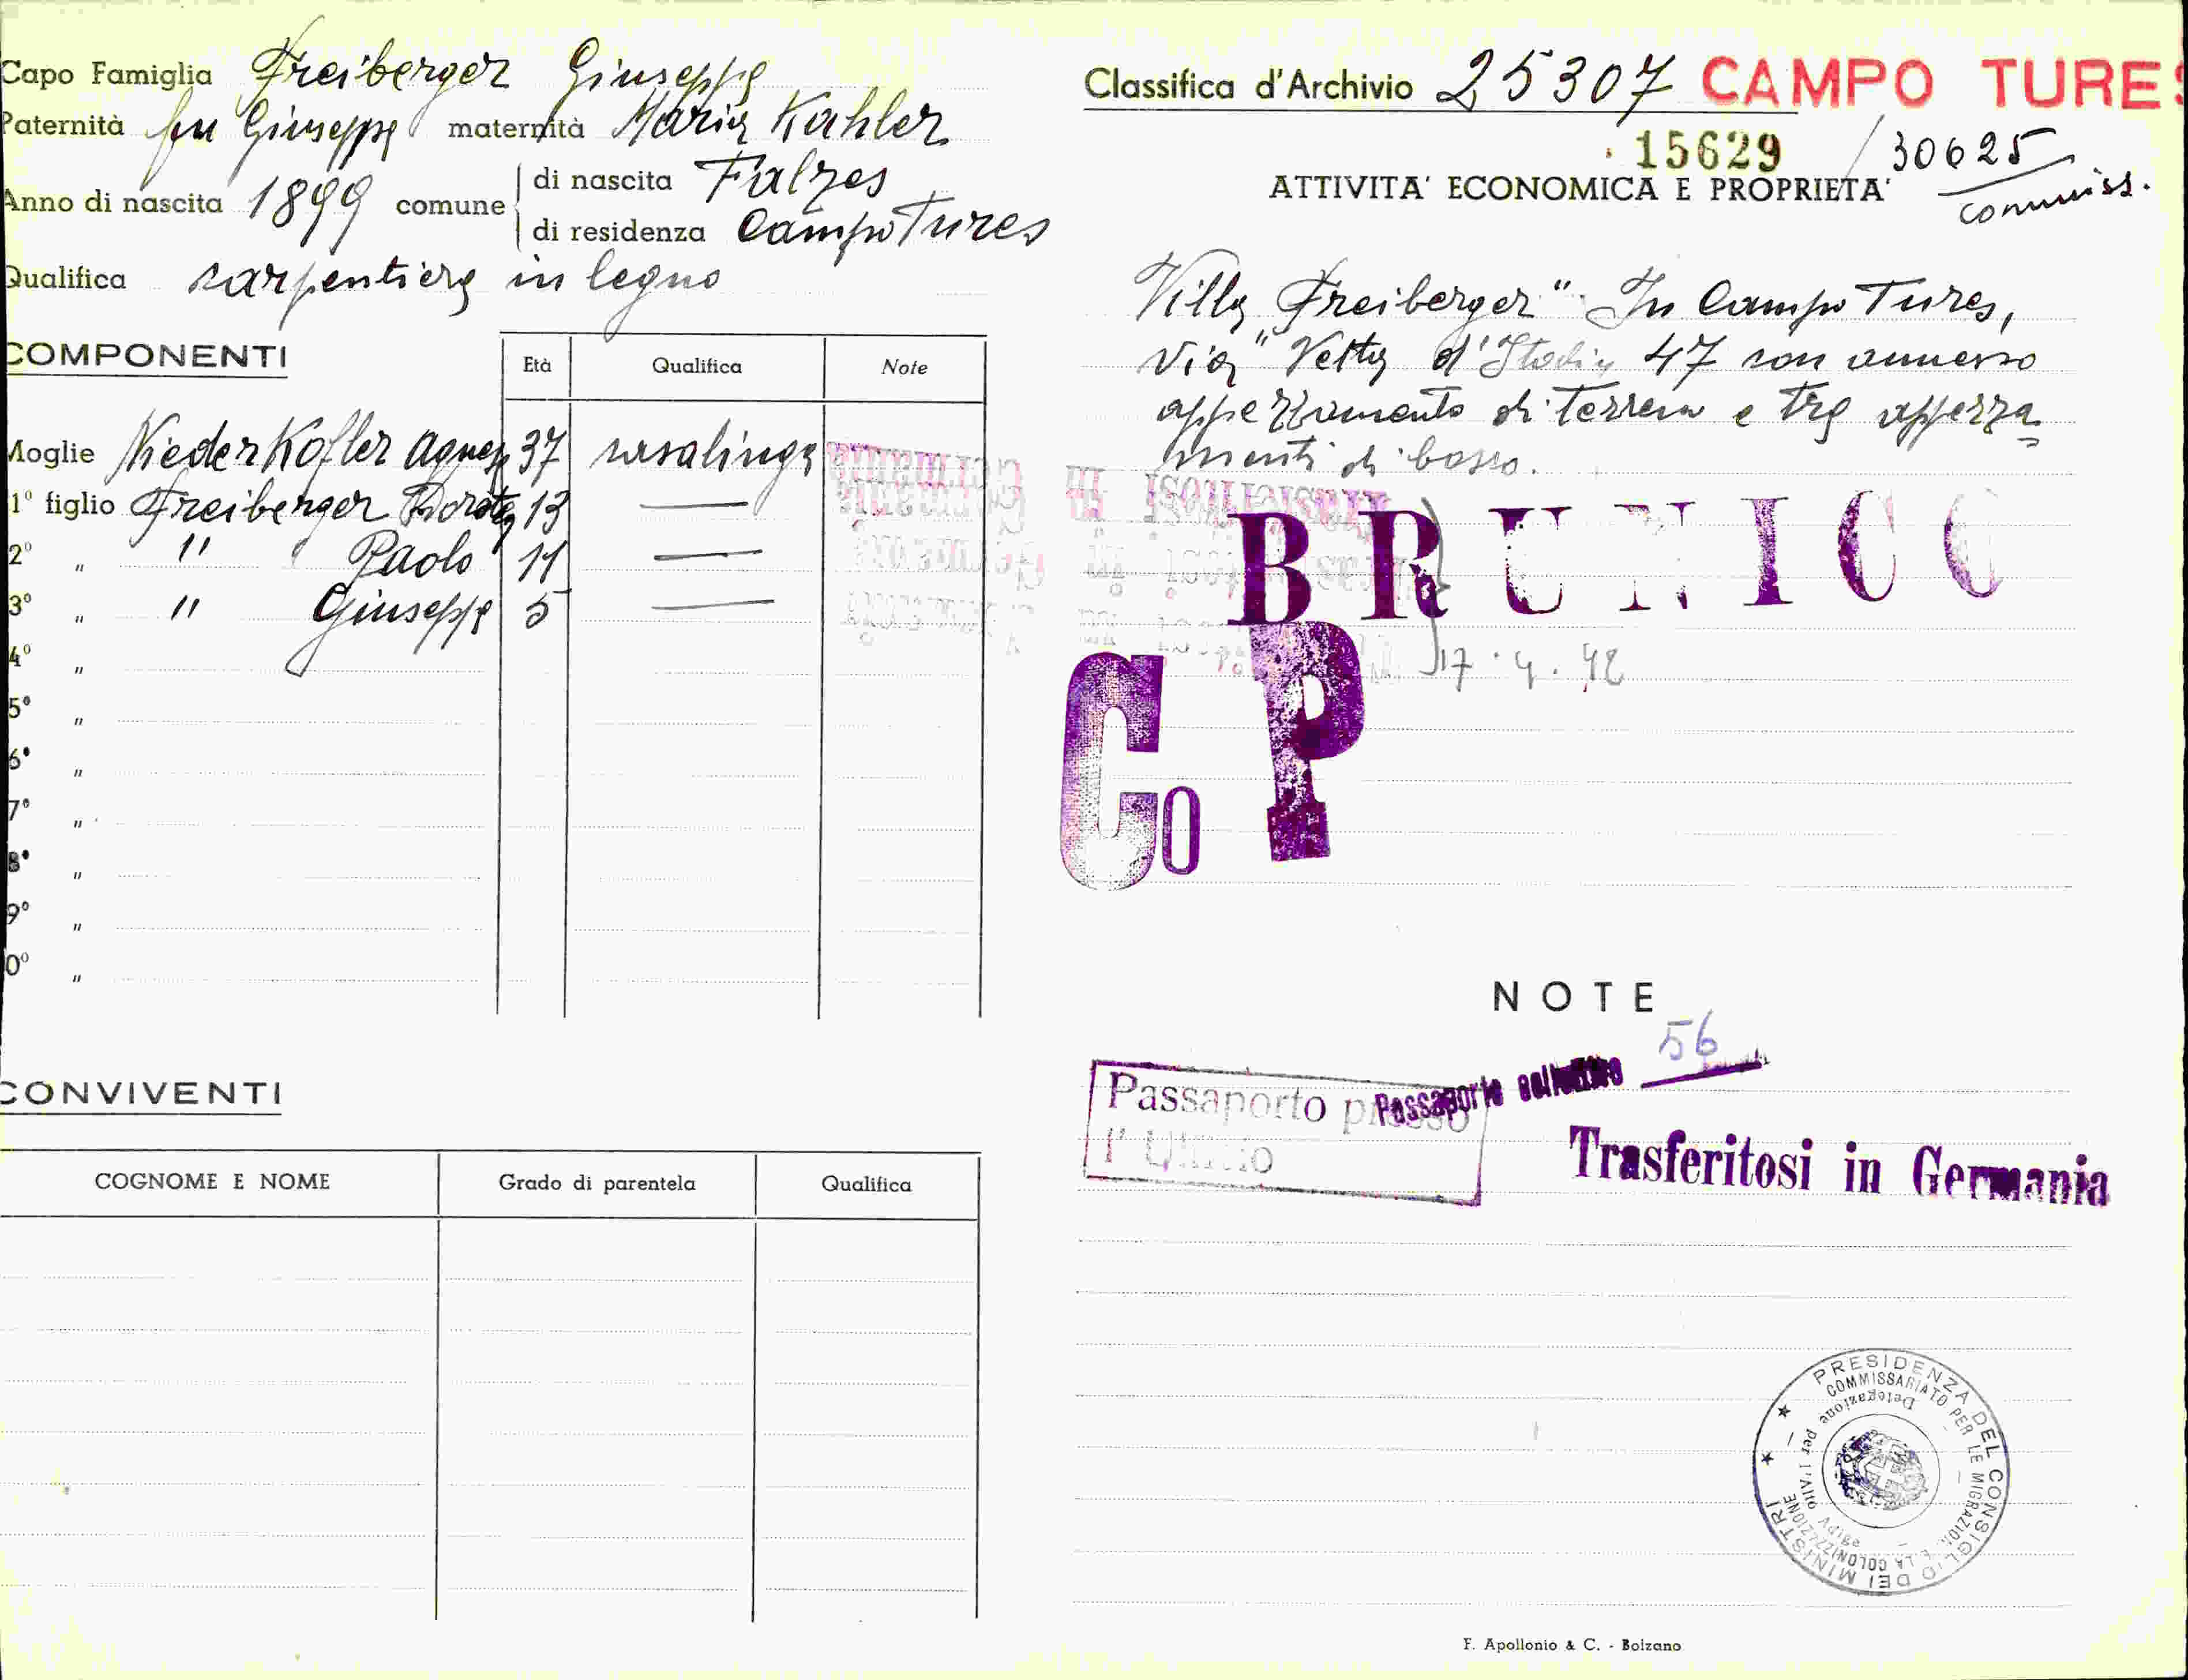 Capo Famiglia Freiberger Giuseppe
Paternità fu Giuseppe maternità Maria Kahler
Anno di nascita 1899 comune di nascita Falzes
di residenza Campo Tures
Qualifica carpentiere in legno
COMPONENTI
Età Qualifica Note
Moglie Niederkofler Agnese 37 casalinga
1º figlio Freiberger Dorotea 13 —
2º " " Paolo 11 —
3º " " Giuseppe 5 —
4º "
5º "
6º "
7º "
8º "
9º "
0º "
CONVIVENTI
COGNOME E NOME Grado di parentela Qualifica
Classifica d'Archivio 25307 CAMPO TURES
15629 / 30625
commiss.
ATTIVITA' ECONOMICA E PROPRIETA'
Villa Freiberger" In Campo Tures,
Via "Vetta d'Italia 47 con annesso
appezzamento di terreno e tre appezza
menti di bosco.
BRUNICO
17.4.42
Co P
NOTE
56
Passaporto collettivo
Passaporto presso
l'Ufficio
Trasferitosi in Germania
PRESIDENZA DEL CONSIGLIO DEI MINISTRI
COMMISSARIATO PER LE MIGRAZIONI E LA COLONIZZAZIONE
Delegazione per l'Alto Adige
F. Apollonio & C. - Bolzano